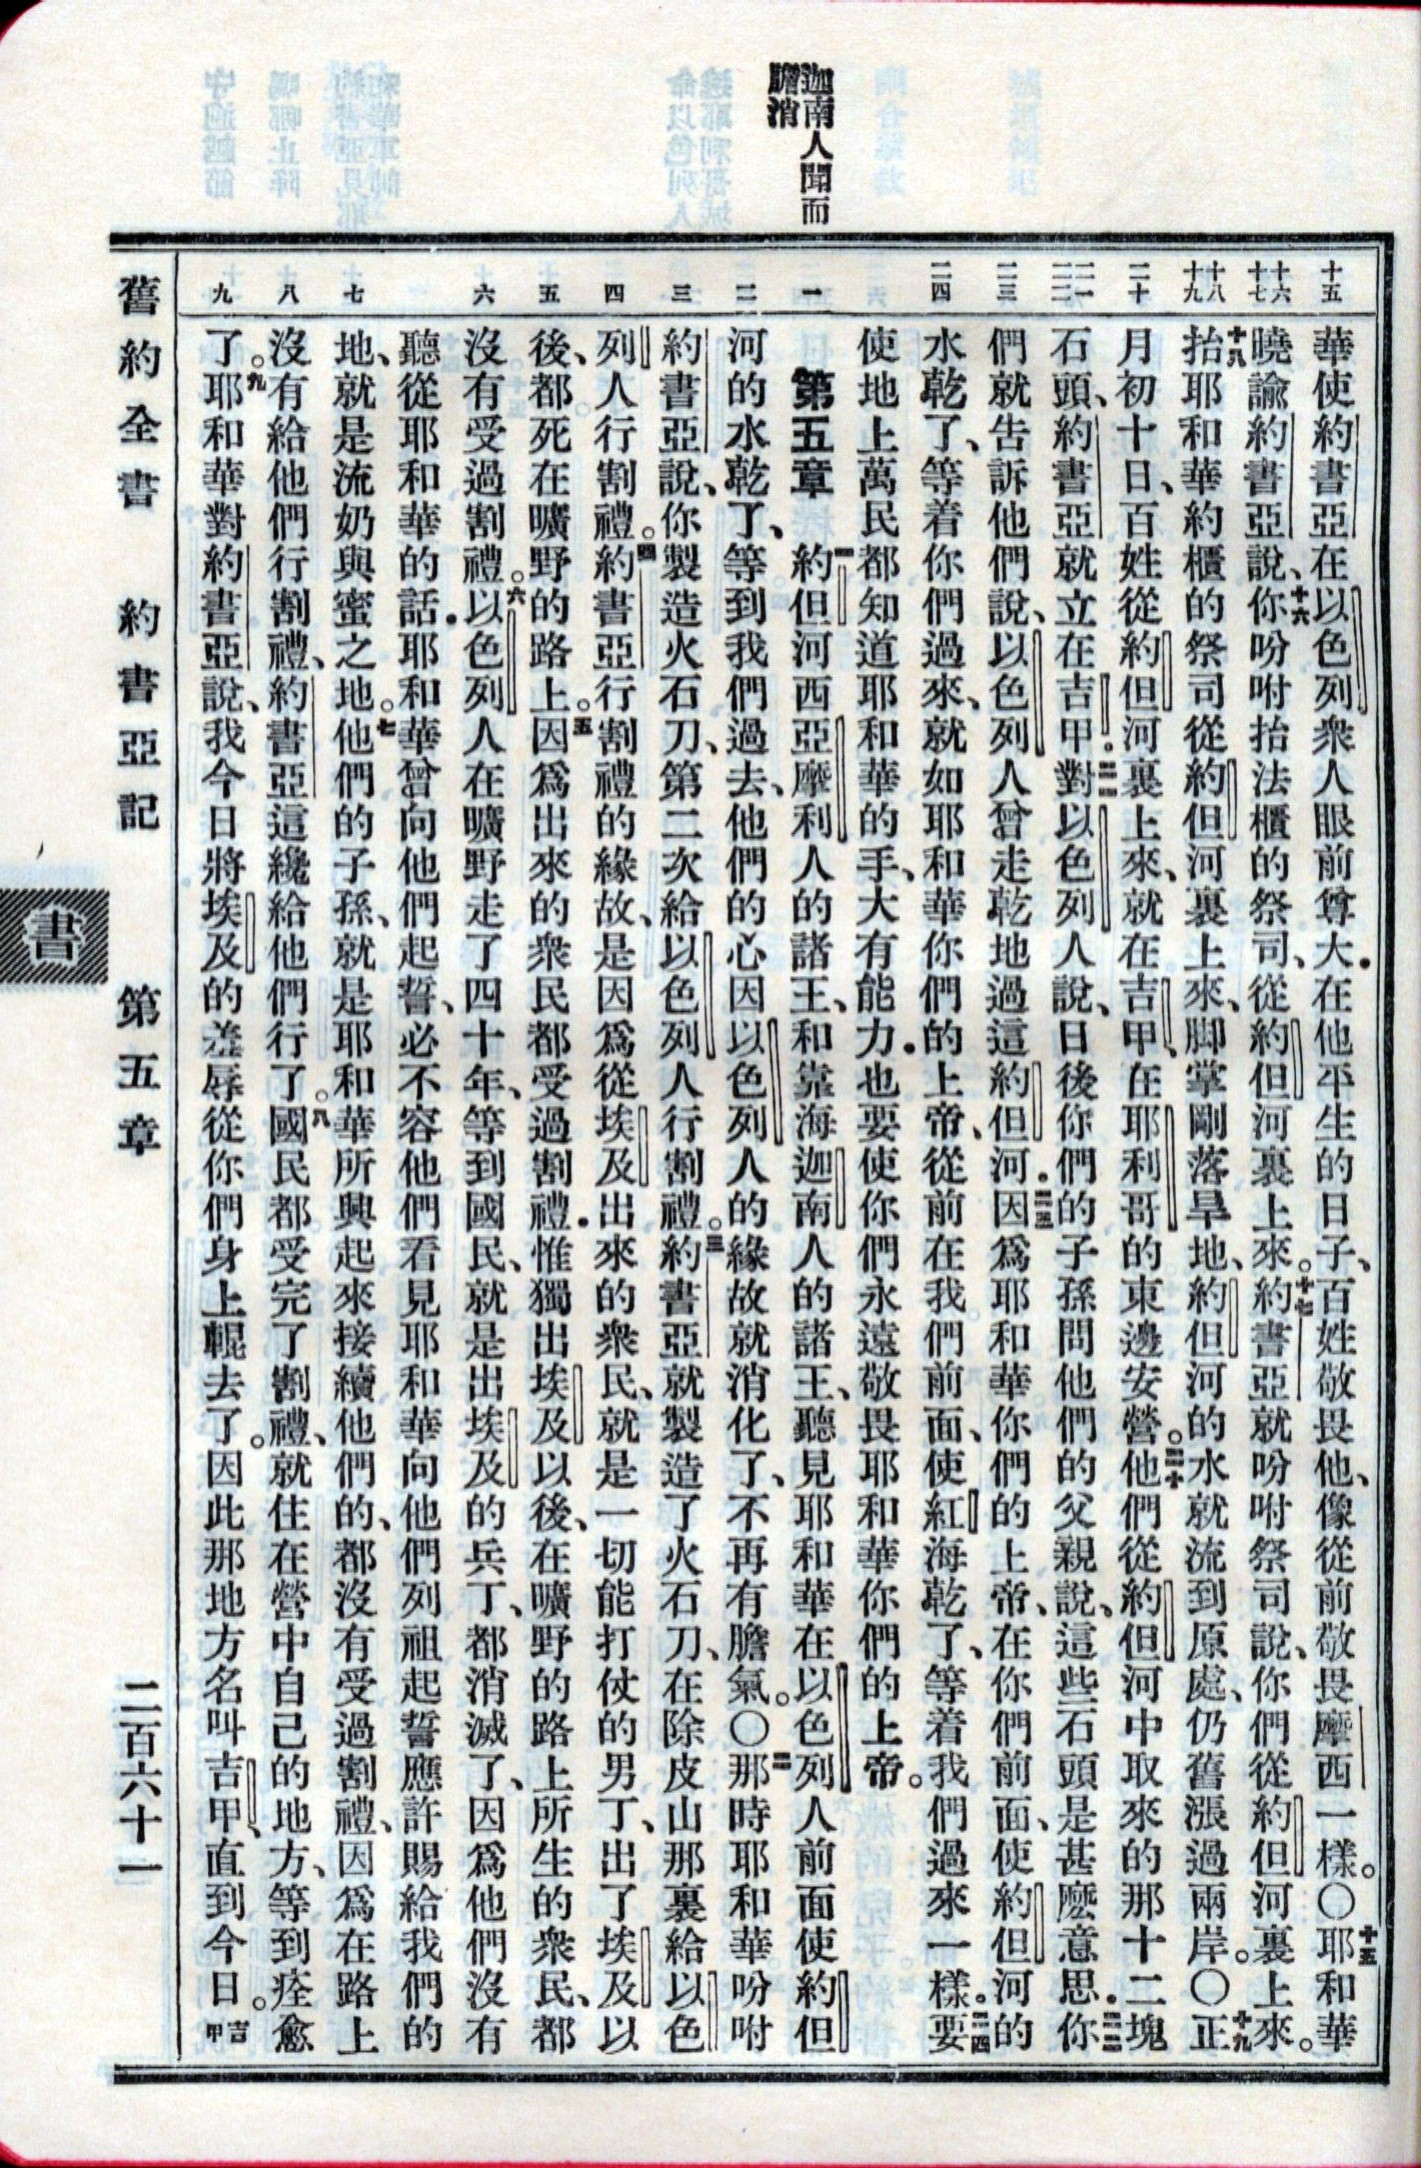 迦南人聞而
膽消
十五
十六
十七
十八
十九
二十
二一
二二
二三
二四
一
二
三
四
五
六
七
八
九
華使約書亞在以色列衆人眼前尊大．在他平生的日子、百姓敬畏他、像從前敬畏摩西一樣。〇十五耶和華
曉諭約書亞說、十六你吩咐抬法櫃的祭司、從約但河裏上來。十七約書亞就吩咐祭司說、你們從約但河裏上來。
十八抬耶和華約櫃的祭司從約但河裏上來、脚掌剛落旱地、約但河的水就流到原處、仍舊漲過兩岸。〇十九正
月初十日、百姓從約但河裏上來、就在吉甲、在耶利哥的東邊安營。二十他們從約但河中取來的那十二塊
石頭、約書亞就立在吉甲．二一對以色列人說、日後你們的子孫問他們的父親說、這些石頭是甚麽意思．二二你
們就告訴他們說、以色列人曾走乾地過這約但河．二三因爲耶和華你們的上帝、在你們前面、使約但河的
水乾了、等着你們過來、就如耶和華你們的上帝、從前在我們前面、使紅海乾了、等着我們過來一樣．二四要
使地上萬民都知道耶和華的手、大有能力．也要使你們永遠敬畏耶和華你們的上帝。
第五章　一約但河西亞摩利人的諸王、和靠海迦南人的諸王、聽見耶和華在以色列人前面使約但
河的水乾了、等到我們過去、他們的心因以色列人的緣故就消化了、不再有膽氣。〇二那時耶和華吩咐
約書亞說、你製造火石刀、第二次給以色列人行割禮。三約書亞就製造了火石刀、在除皮山那裏給以色
列人行割禮。四約書亞行割禮的緣故、是因爲從埃及出來的衆民、就是一切能打仗的男丁、出了埃及以
後、都死在曠野的路上。五因爲出來的衆民都受過割禮．惟獨出埃及以後、在曠野的路上所生的衆民、都
沒有受過割禮。六以色列人在曠野走了四十年、等到國民、就是出埃及的兵丁、都消滅了、因爲他們沒有
聽從耶和華的話．耶和華曾向他們起誓、必不容他們看見耶和華向他們列祖起誓應許賜給我們的
地、就是流奶與蜜之地。七他們的子孫、就是耶和華所興起來接續他們的、都沒有受過割禮、因爲在路上
沒有給他們行割禮、約書亞這纔給他們行了。八國民都受完了割禮、就住在營中自己的地方、等到痊愈
了。九耶和華對約書亞說、我今日將埃及的羞辱從你們身上輥去了。因此那地方名叫吉甲、直到今日。吉甲
舊約全書　約書亞記　第五章　二百六十一
書